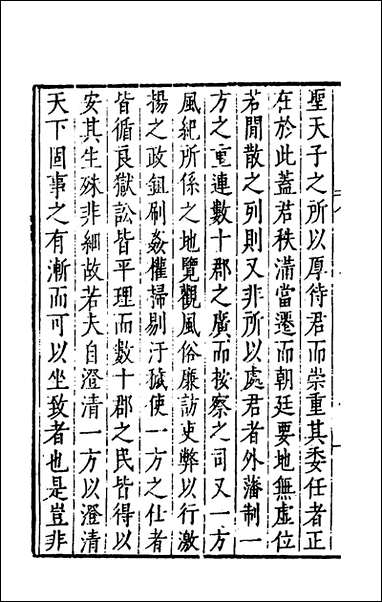 聖天子之所以厚待君而崇重其委任者正
在於此蓋若秩滿當遷而朝廷要地無虛位
若閒散之列則又非所以處君者外藩制一
方之重連數十郡之廣而按察之司又一方
風紀所係之地覽觀風俗廉訪吏弊以行激
揚之政鉏刷姦權掃剔汙穢使一方之仕者
皆循良獄訟皆平理而數十郡之民皆得以
安其生殊非細故若夫自澄清一方以澄清
天下固事之有漸而可以坐致者也是豈非